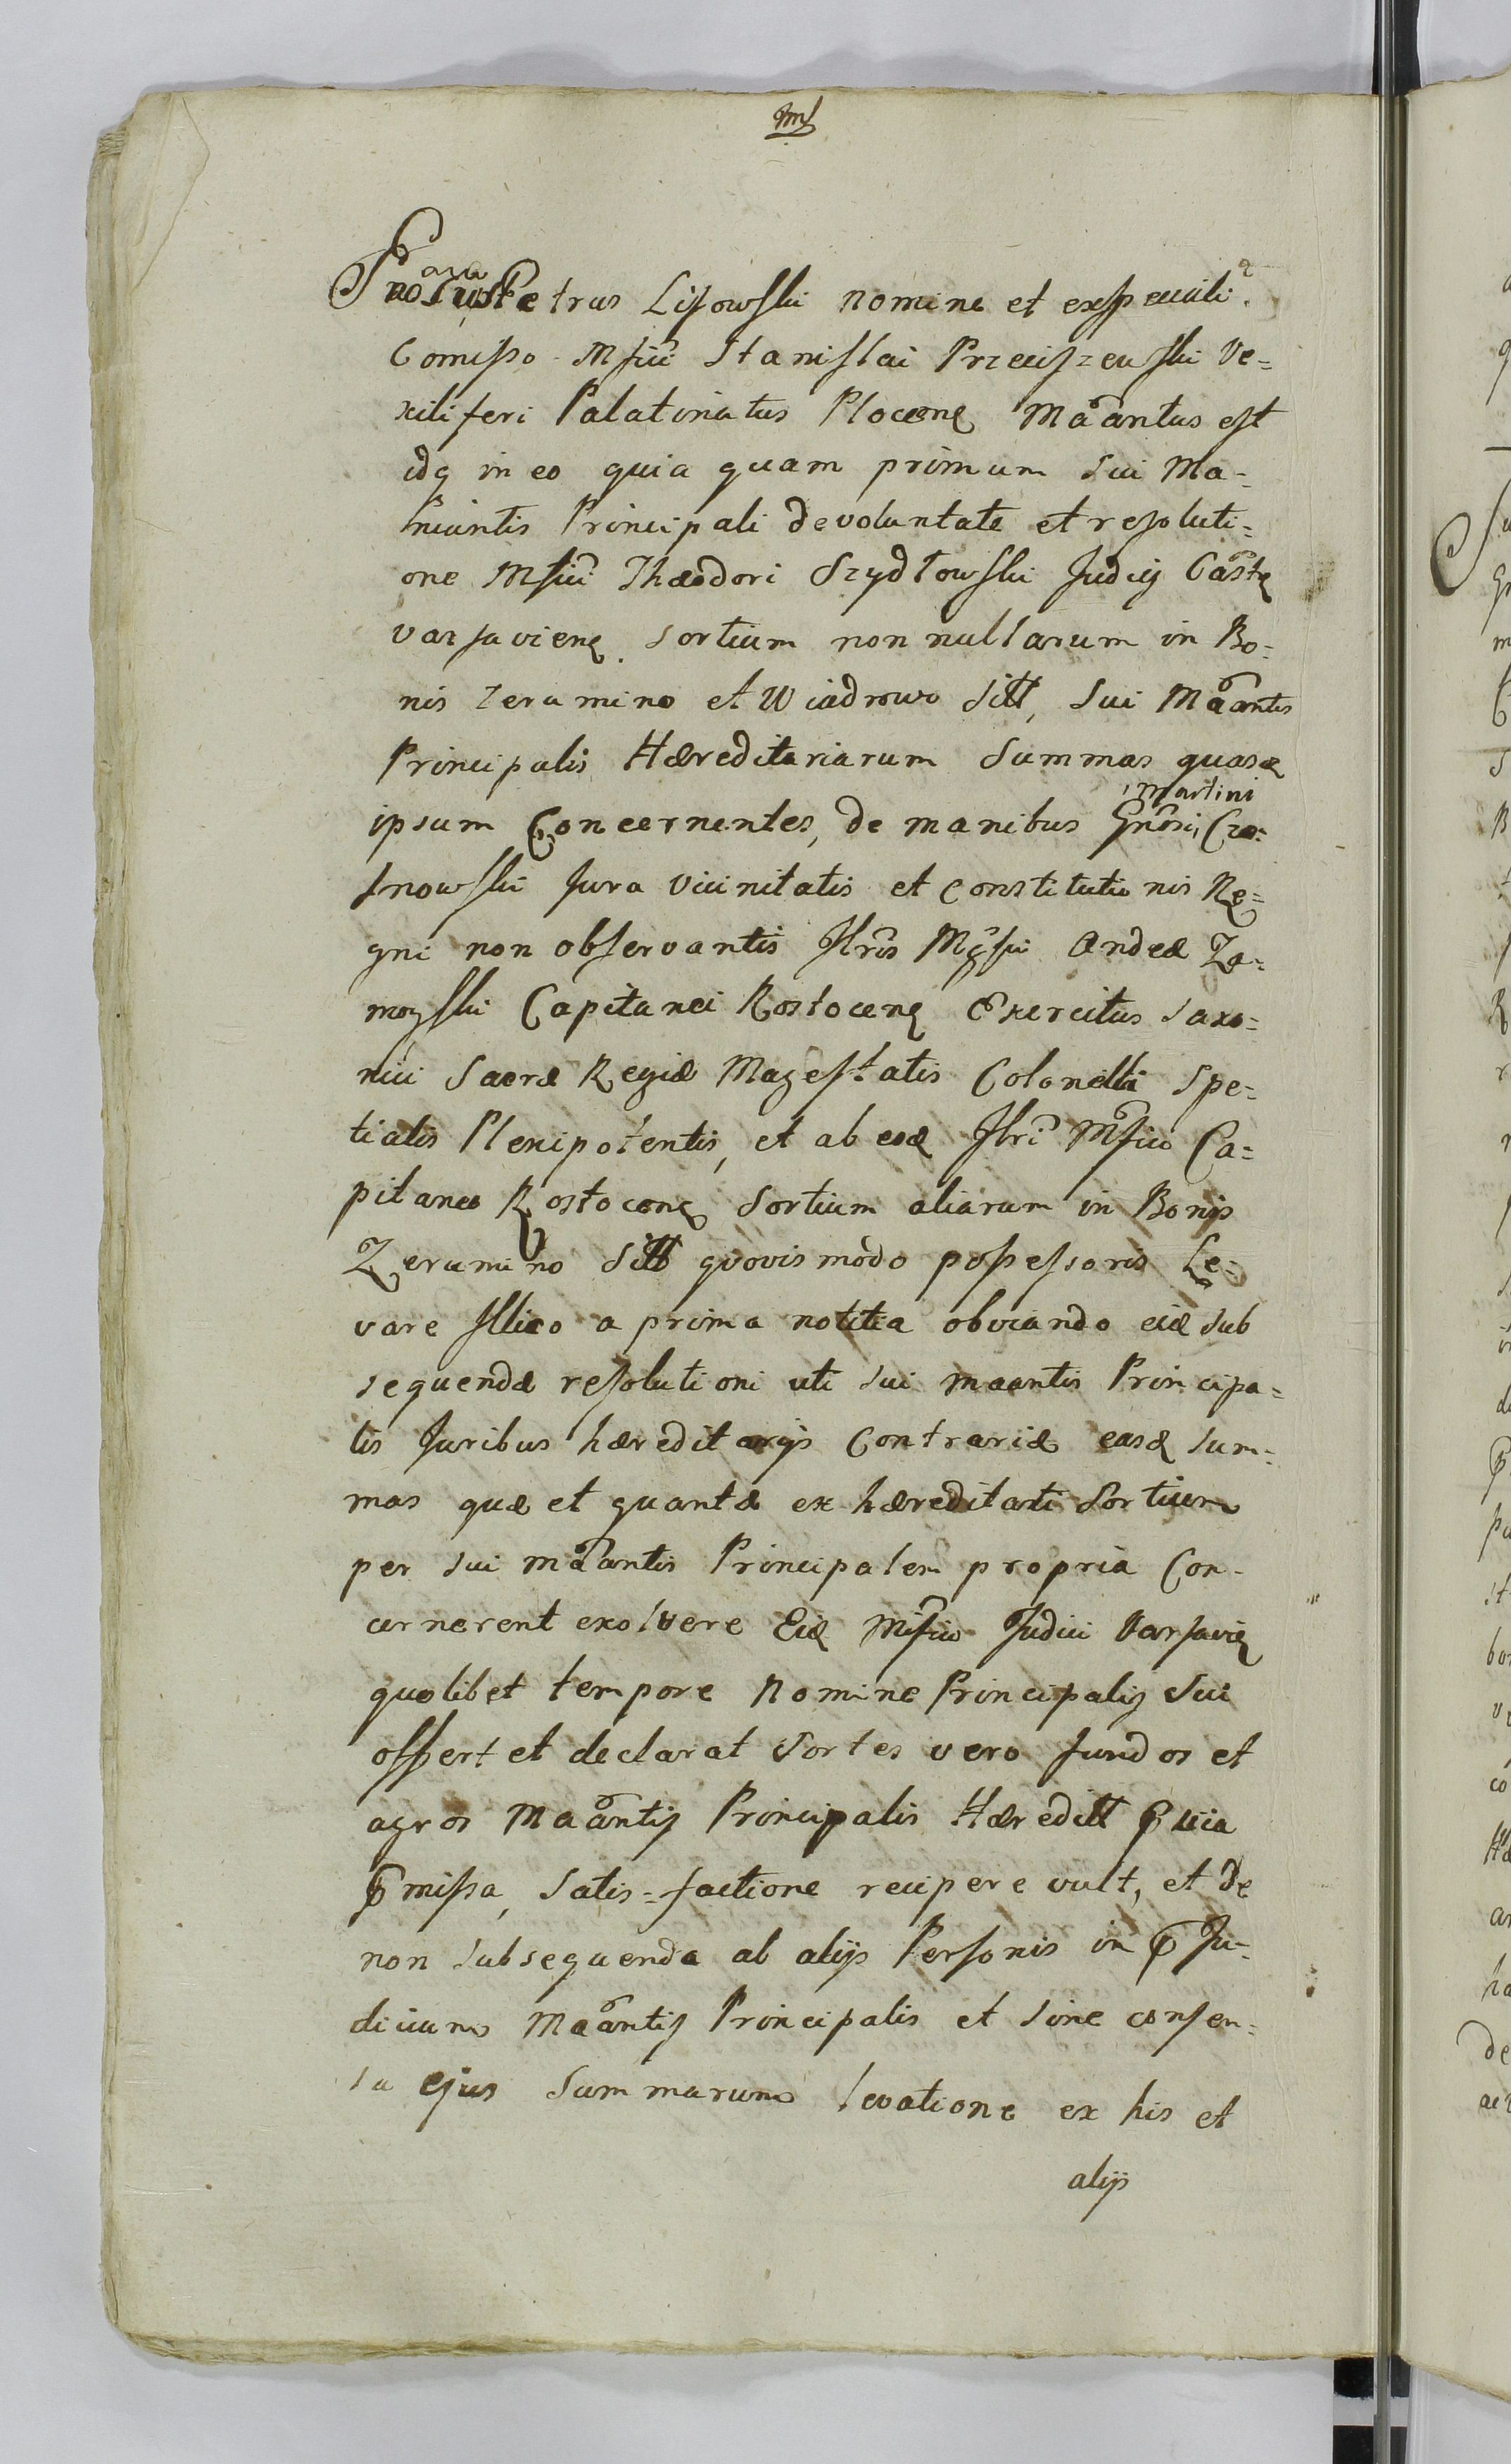 Petrus Lisowski nomine et ex speciali
Comisso Mfici Stanislai Przeciszewski Ve=
xiliferi Palatinatus Plocens Maantus est
idq in eo quia quam primum sui Ma=
niantis Principali de voluntate et resoluti=
one Mfici Theodori Szydłowski Judicij Castr
varsaviens. sortium non nullarum in Bo=
nis Zerumino et Wiadrowo Sitt, Sui Maantis
Principalis Hæreditariarum Summas quasd
ipsum Concernentes, de manibus Gnosi, Martini Cza=
snowski Jura Vicinitatis et Constitutionis Re=
gni non observantis Illris Mgfici Andeæ Za=
moyski Capitanei Rostocens Exercitus Saxo=
nici Sacræ Regiæ Magestatis Colonelli Spe=
tialis Plenipotentis, et ab eod Illri Mfico Ca=
pitaneo Rostocens Sortium aliarum in Bonis
Zerumino Sitt quovis modo possessoris Le=
vare Illico a prima notitia obviando eid sub
sequendæ resolutioni uti sui maantis Principa=
lis Juribus hæreditarijs Contrariæ easd sum=
mas quæ et quantæ ex hæreditati Sortium
per sui maantis Principalem propria Con=
cernerent exolvere Eid Mfico Judici Varsavies
quolibet tempore Nomine Principalis Sui
offert et declarat Sortes vero fundos et
agros Maantis Principalis Hæreditt
missa, satis=factione recipere vult, et de
non subsequenda ab alijs Personis in Ju=
dicium Maantis Principalis et sine consen=
su ejus Summarum levatione ex his et
alijs